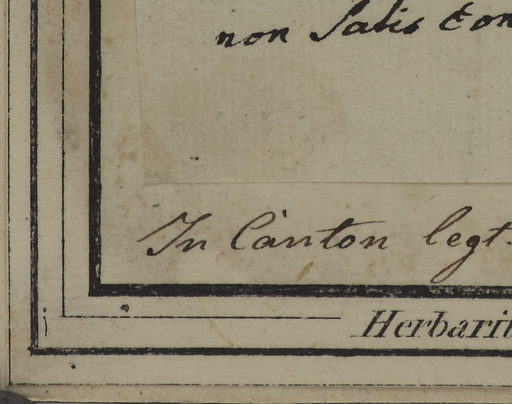 non Satis
In Canton legt.
Herbariu